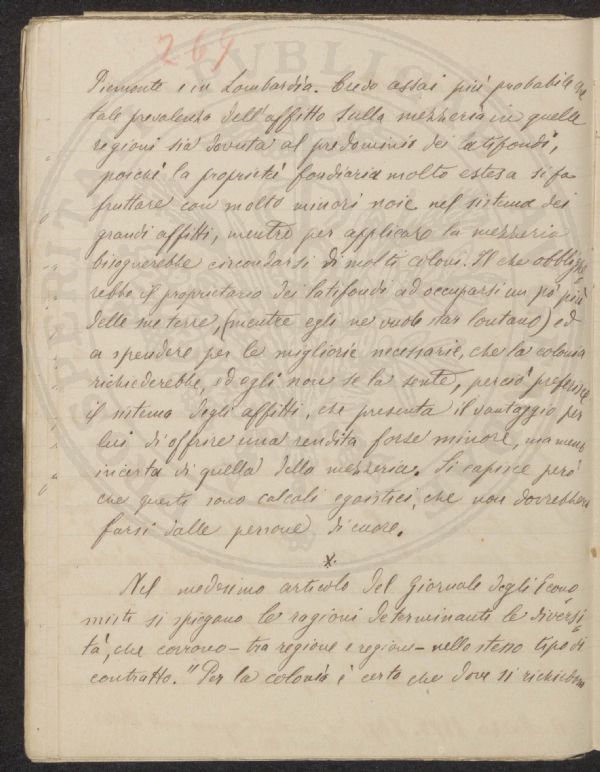 269
Piemonte e in Lombardia. Credo assai più probabile che
tale prevalenza dell'affitto sulla mezzeria in quelle
regioni sia dovuta al predominio dei latifondi,
poiché la proprietà fondiaria molto estesa si fa
fruttare con molto minori noie nel sistema dei
grandi affitti, mentre per applicare la mezzeria
bisognerebbe circondarsi di molti coloni. Il che obblighe=
rebbe il proprietario dei latifondi ad occuparsi un pò più
delle sue terre, (mentre egli ne vuole star lontano) ed
a spendere per le migliorie necessarie, che la colonia
richiederebbe, ed egli non se la sente, perciò preferisce
il sistema degli affitti, che presenta il vantaggio per
lui di offrire una rendita forse minore, ma meno
incerta di quella della mezzeria. Si capisce però
che questi sono calcoli egoistici, che non dovrebbero
farsi dalle persone di cuore.
x.
Nel medesimo articolo del Giornale degli Econo
misti si spiegano le ragioni determinanti le diversi=
tà, che corrono - tra regione e regione - nello stesso tipo di
contratto. "Per la colonia è certo che dove si richiedono
PUBLICA